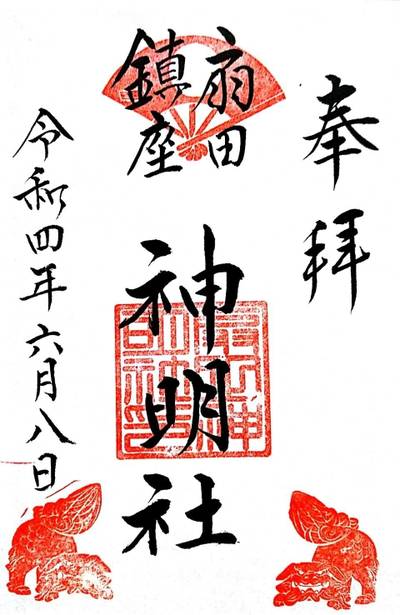 奉拝
扇田
鎮座
神明社
令和四年六月八日